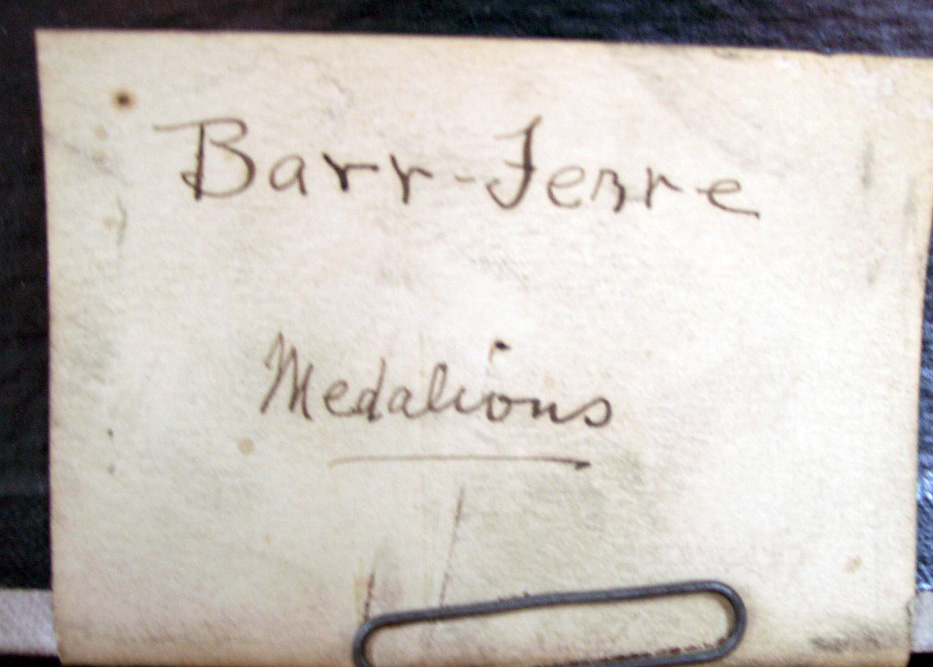 Barr-Ferre
Medalions